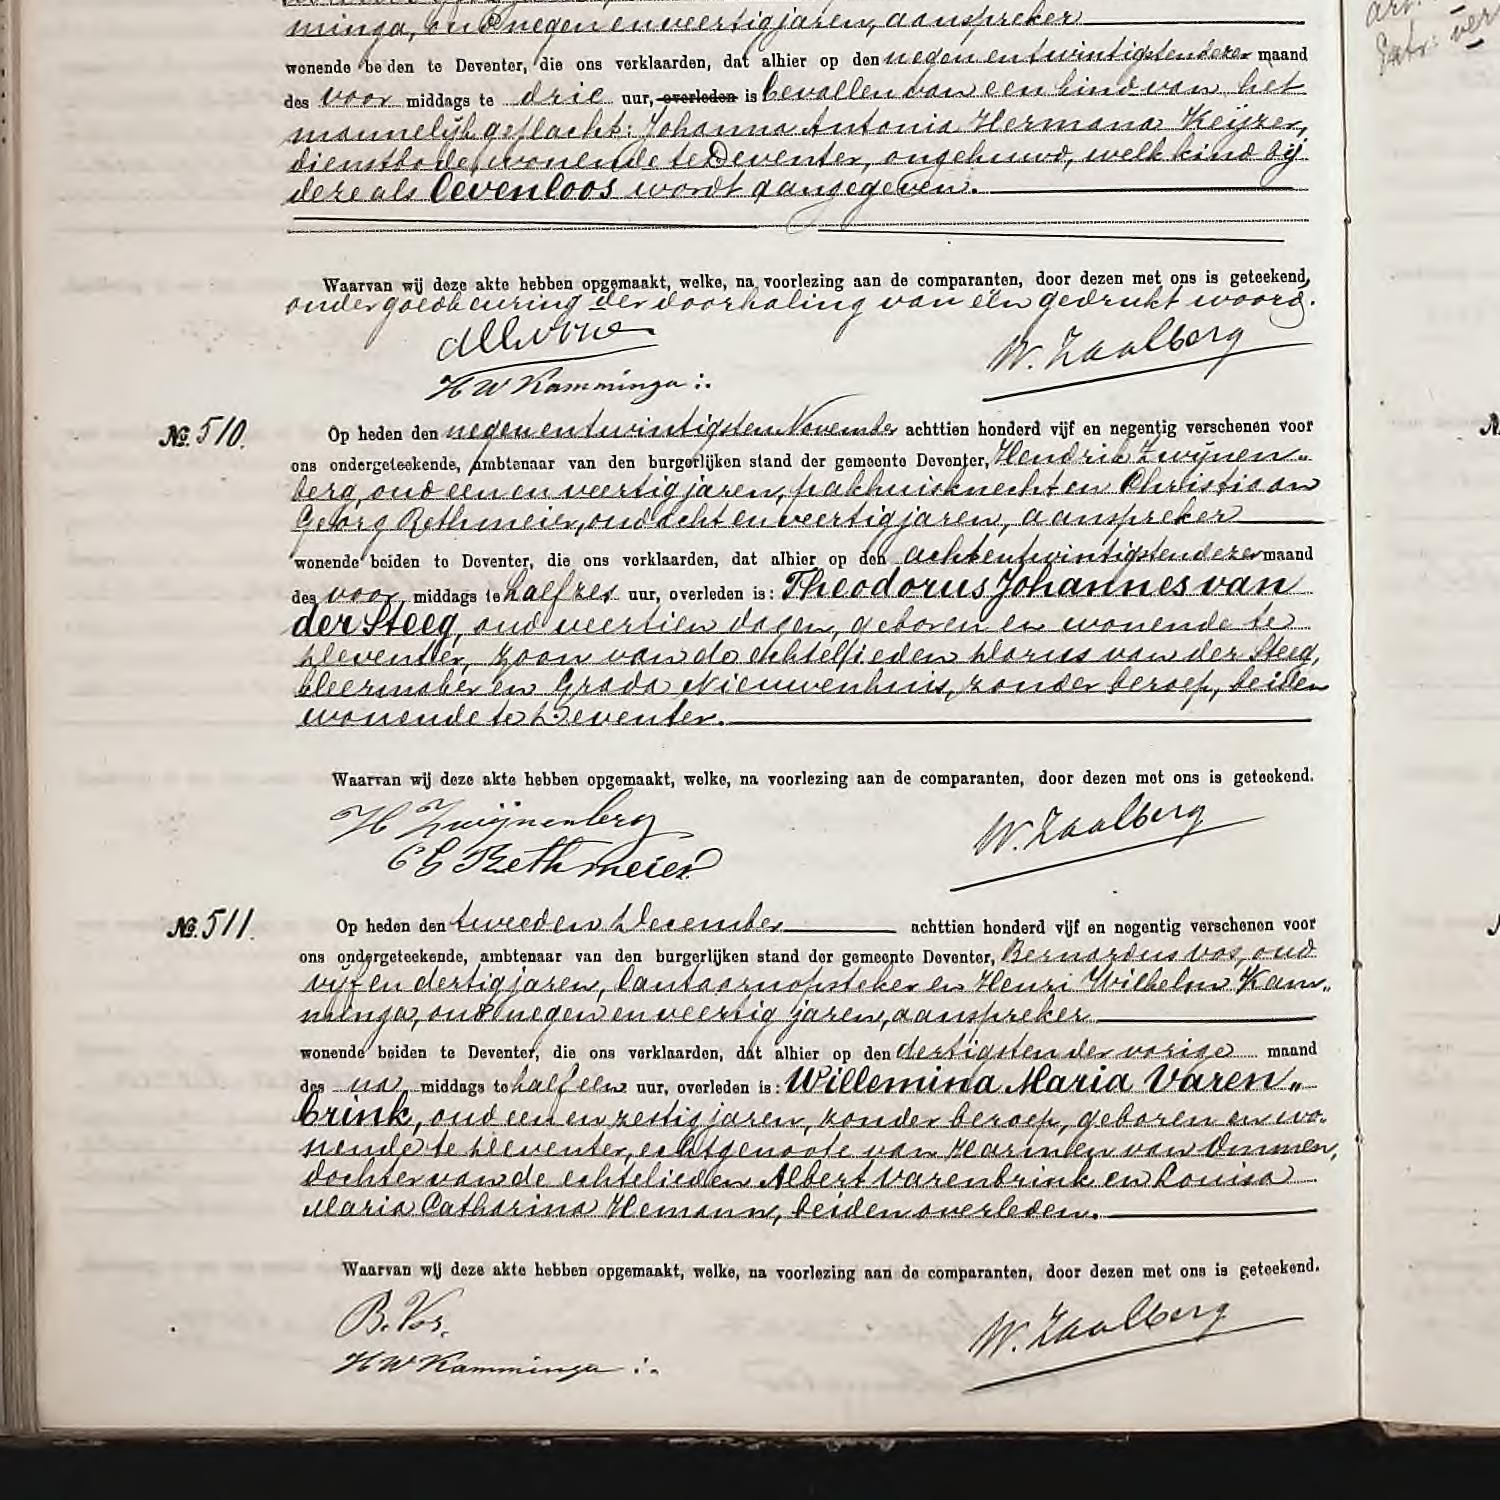 minga, oud negen en veertig jaren, aanspreker
wonende beiden te Deventer, die ons verklaarden, dat alhier op den negen en twintigsten dezer maand
des voor middags te drie uur, overleden is bevallen van een kind van het
mannelijk geslacht: Johanna Antonia Hermana Keijzer,
dienstbode, wonende te Deventer, ongehuwd, welk kind bij
deze als levenloos wordt aangegeven.
Waarvan wij deze akte hebben opgemaakt, welke, na voorlezing aan de comparanten, door dezen met ons is geteekend,
onder goedkeuring der doorhaling van één gedrukt woord.
W. Zaalberg
H W Kamminga :.
No. 510.
Op heden den negen en twintigsten November achttien honderd vijf en negentig verschenen voor
ons ondergeteekende, ambtenaar van den burgerlijken stand der gemeente Deventer, Hendrik Zwijnen„
berg, oud een en veertig jaren, pakhuisknecht en Christiaan
Georg Rethmeier, oud acht en veertig jaren, aanspreker
wonende beiden te Deventer, die ons verklaarden, dat alhier op den achtentwintigsten dezer maand
des voor middags te half zes uur, overleden is: Theodorus Johannes van
der Steeg, oud veertien dagen, geboren en wonende te
Deventer, zoon van de echtelieden Dorus van der Steeg,
kleermaker en Grada Nieuwenhuis, zonder beroep, beiden
wonende te Deventer.
Waarvan wij deze akte hebben opgemaakt, welke, na voorlezing aan de comparanten, door dezen met ons is geteekend.
H Zwijnenberg
W. Zaalberg
C G Rethmeier
No. 511.
Op heden den tweeden December achttien honderd vijf en negentig verschenen voor
ons ondergeteekende, ambtenaar van den burgerlijken stand der gemeente Deventer, Bernardus Vos, oud
vijf en dertig jaren, lantaarnopsteker en Henri Wilhelm Kam„
minga, oud negen en veertig jaren, aanspreker
wonende beiden te Deventer, die ons verklaarden, dat alhier op den dertigsten der vorige maand
des na middags te half een uur, overleden is: Willemina Maria Varen„
brink, oud een en zestig jaren, zonder beroep, geboren en wo„
nende te Deventer, echtgenoote van Harmken van Ommen,
dochter van de echtelieden Albert Varenbrink en Louisa
Maria Catharina Hemann, beiden overleden.
Waarvan wij deze akte hebben opgemaakt, welke, na voorlezing aan de comparanten, door dezen met ons is geteekend.
B. Vos.
W. Zaalberg
H W Kamminga :.